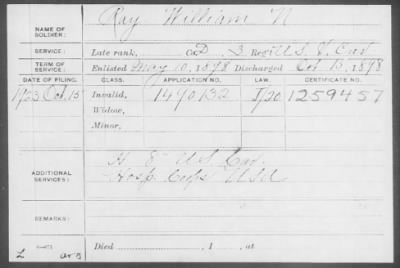 NAME OF SOLDIER: Ray William N
SERVICE: Late rank, Co. D, 3 Reg't U S V. Cav
TERM OF SERVICE: Enlisted May 10, 1898 Discharged Oct 13, 1898
DATE OF FILING. CLASS. APPLICATION NO. LAW. CERTIFICATE NO.
1923 Oct. 15 Invalid, 1490132 1259457
Widow,
Minor,
ADDITIONAL SERVICES: H 8" U S Cav.
Hosp. Corps U.S.A
REMARKS:
Died , 1 , at